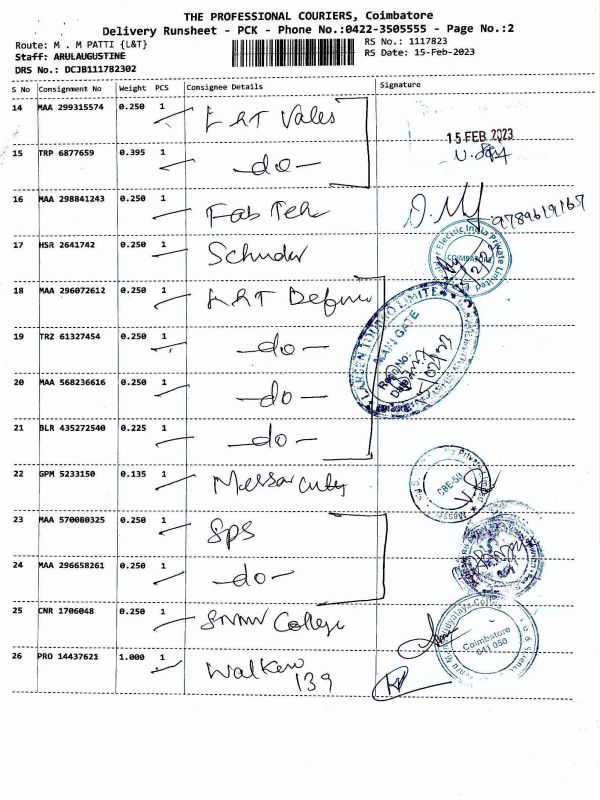 THE PROFESSIONAL COURIERS, Coimbatore
Delivery Runsheet - PCK - Phone No.:0422-3505555 - Page No.:2
Route: M . M PATTI {L&T}
RS No.: 1117823
Staff: ARULAUGUSTINE
RS Date: 15-Feb-2023
DRS No.: DCJB111782302
S No Consignment No Weight PCS Consignee Details Signature
14 MAA 299315574 0.250 1 L&T Valves
15 FEB 2023
15 TRP 6877659 0.395 1 -do-
16 MAA 298841243 0.250 1 Fab Tek 9789619167
17 HSR 2641742 0.250 1
Electric India Private Limited
COIMBATORE
18 MAA 296072612 0.250 1 L&T Defence
LARSEN TOUBRO LIMITED
MAIN GATE
19 TRZ 61327454 0.250 1 -do-
20 MAA 568236616 0.250 1 -do-
21 BLR 435272540 0.225 1 -do-
22 GPM 5233150 0.135 1
CBE-50
23 MAA 570080325 0.250 1 Sps
24 MAA 296658261 0.250 1 -do-
25 CNR 1706048 0.250 1 College
Coimbatore
641 050
26 PRO 14437621 1.000 1 Walkers
139